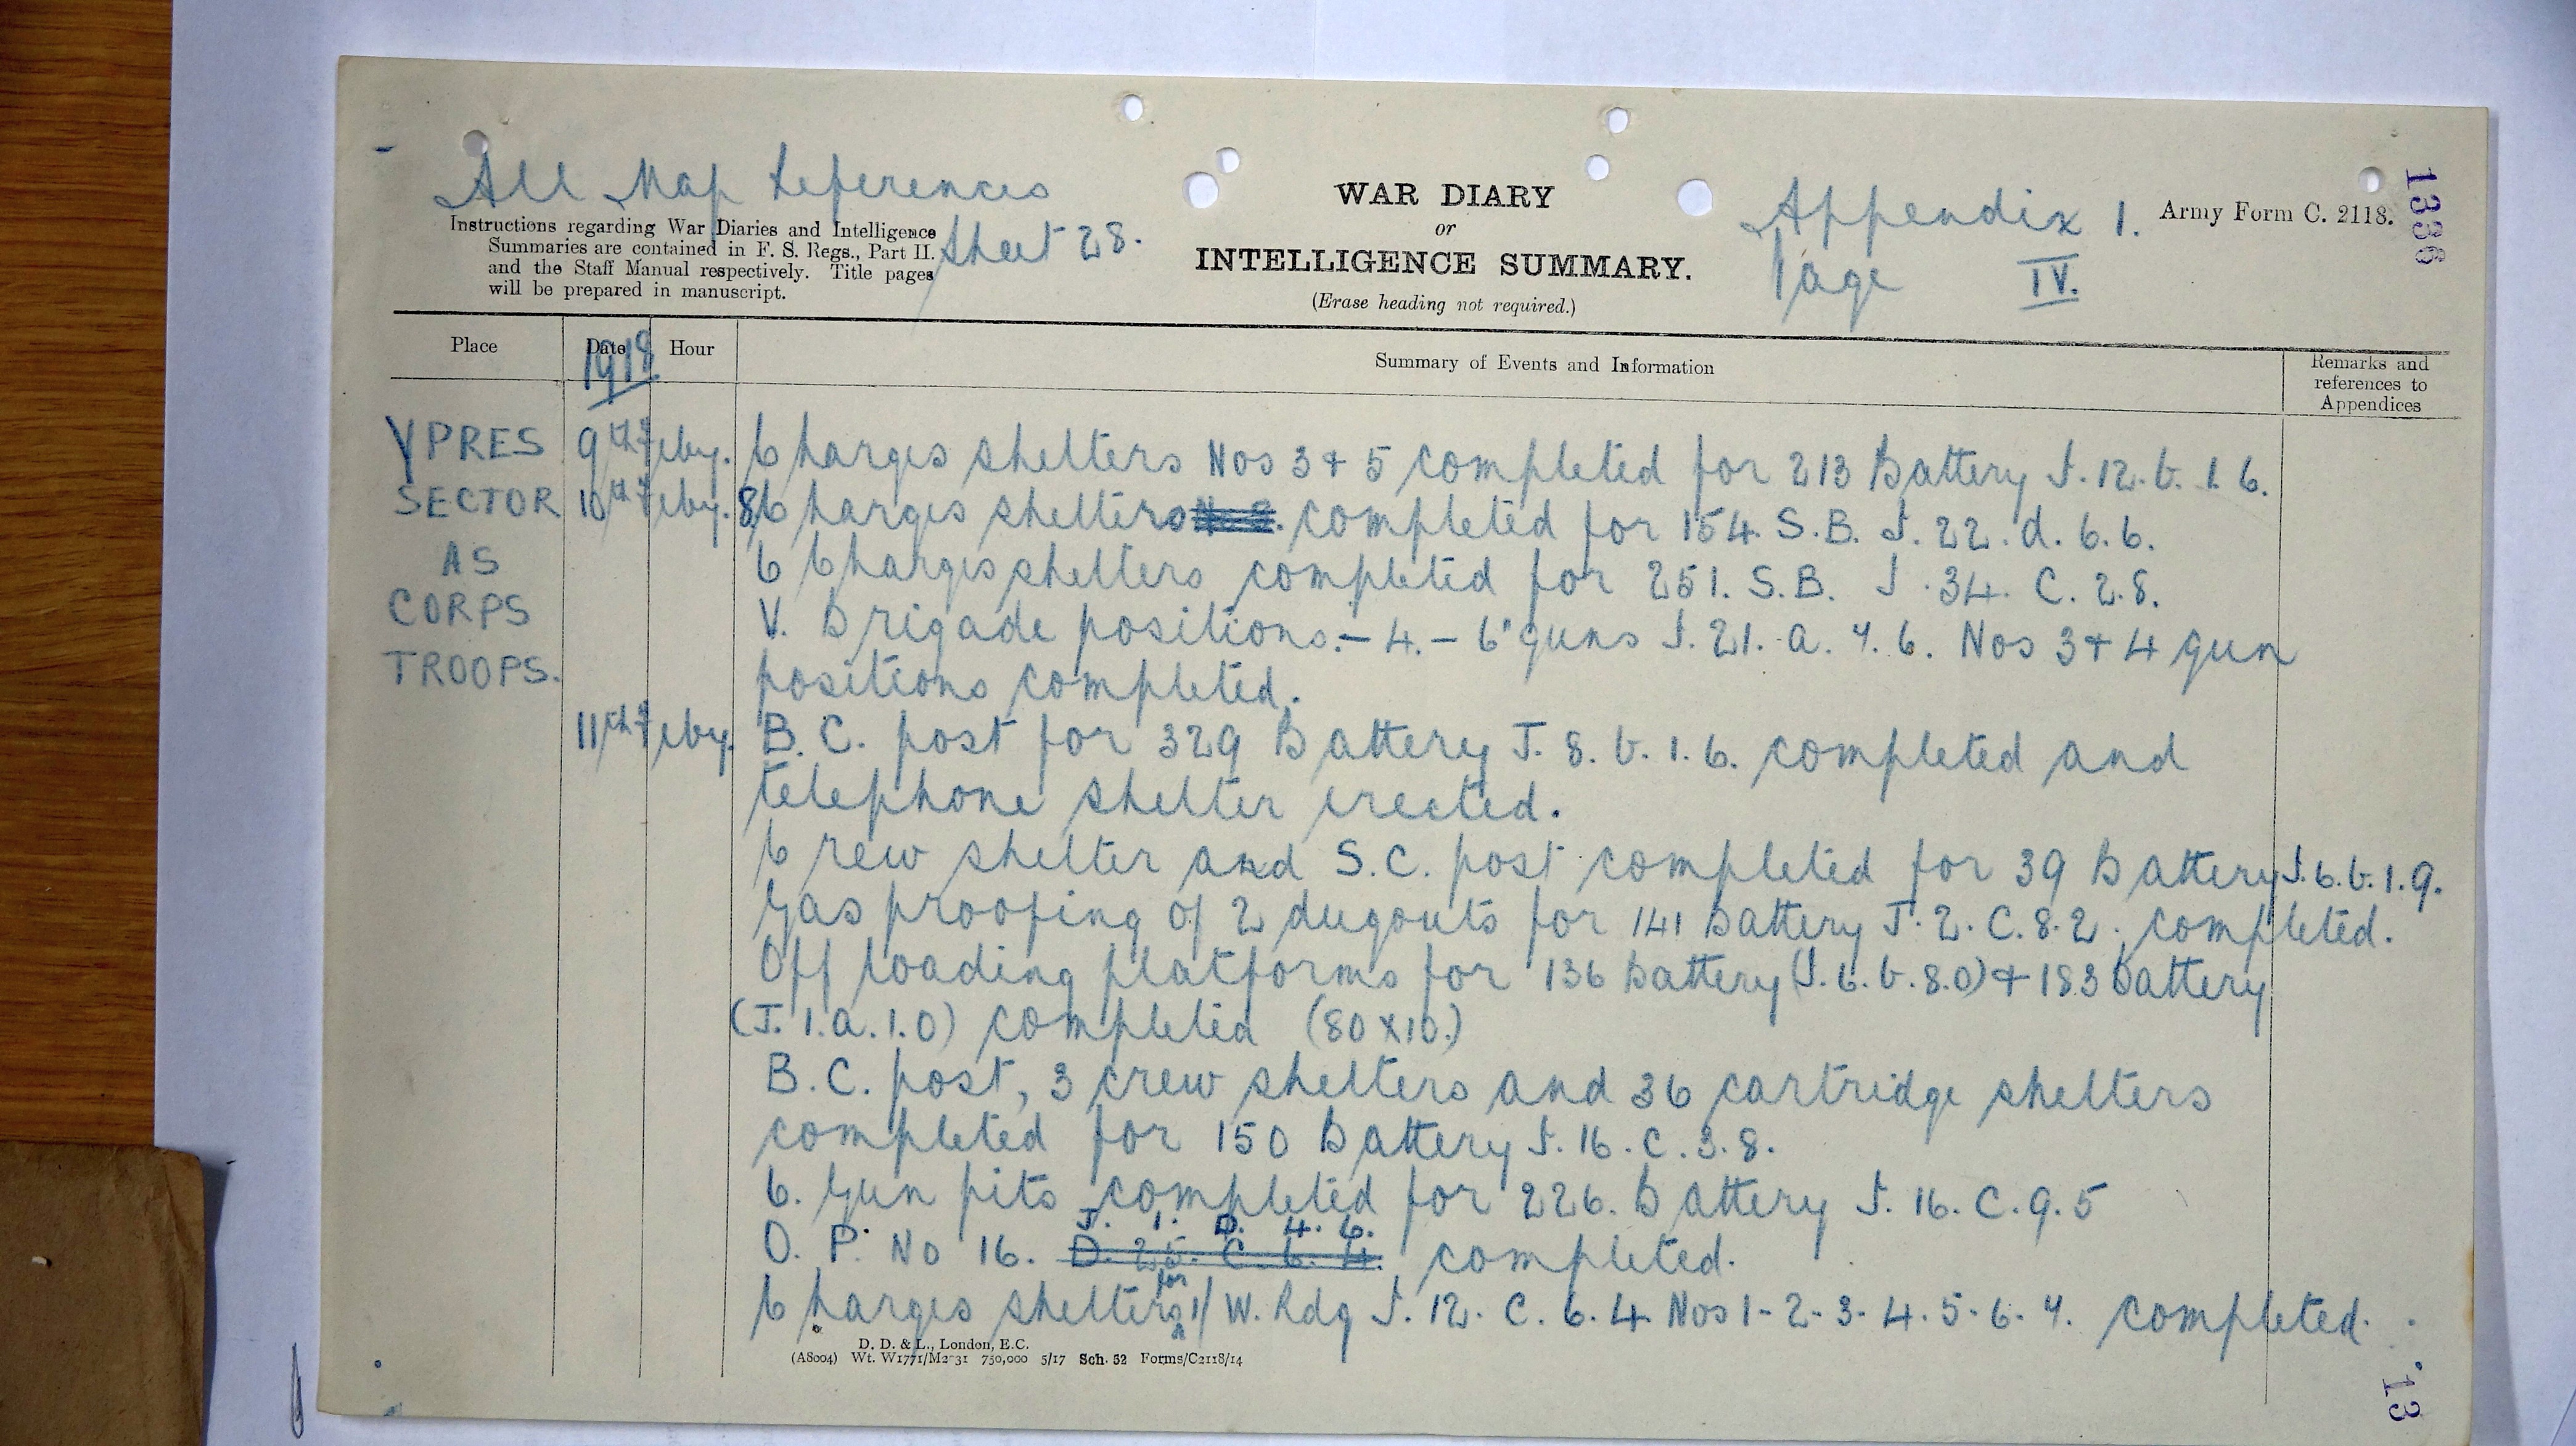 All Map References
Sheet 28.
Instructions regarding War Diaries and Intelligence
Summaries are contained in F. S. Regs., Part II.
and the Staff Manual respectively. Title pages
will be prepared in manuscript.
WAR DIARY
or
INTELLIGENCE SUMMARY.
(Erase heading not required.)
Appendix 1.
Page IV.
Army Form C. 2118.
1336
Place Date Hour Summary of Events and Information Remarks and references to Appendices
1918
YPRES 9th Feby. Charges shelters Nos 3 & 5 completed for 213 Battery J.12.b.1.6.
SECTOR 10th Feby. 8 Charges shelters completed for 154. S.B. J.22.d.6.6.
AS 6 Charges shelters completed for 251. S.B. J.34.C.2.8.
CORPS V. Brigade positions:- 4.- 6" guns J.21.a.7.6. Nos 3 & 4 gun
TROOPS. positions completed.
11th Feby. B.C. post for 329 Battery J.8.b.1.6. completed and
telephone shelter erected.
Crew shelter and S.C. post completed for 39 Battery J.6.b.1.9.
Gas proofing of 2 dugouts for 141 Battery J.2.C.8.2. completed.
Off loading platforms for 136 Battery (J.6.b.8.0) & 183 Battery
(J.1.a.1.0) completed (80 x 10.)
B.C. post, 3 crew shelters and 36 cartridge shelters
completed for 150 Battery J.16.C.3.8.
6. Gun pits completed for 226. Battery J.16.C.9.5
J. 1. D. 4. 6.
O. P. No 16. D. 25. C. 6. 4. completed.
Charges shelters for 1/W. Rdg J.12.C.6.4 Nos 1-2-3-4.5-6.7. completed.
D. D. & L., London, E.C.
(A8004) Wt. W1771/M2 31 750,000 5/17 Sch. 52 Forms/C2118/14
13